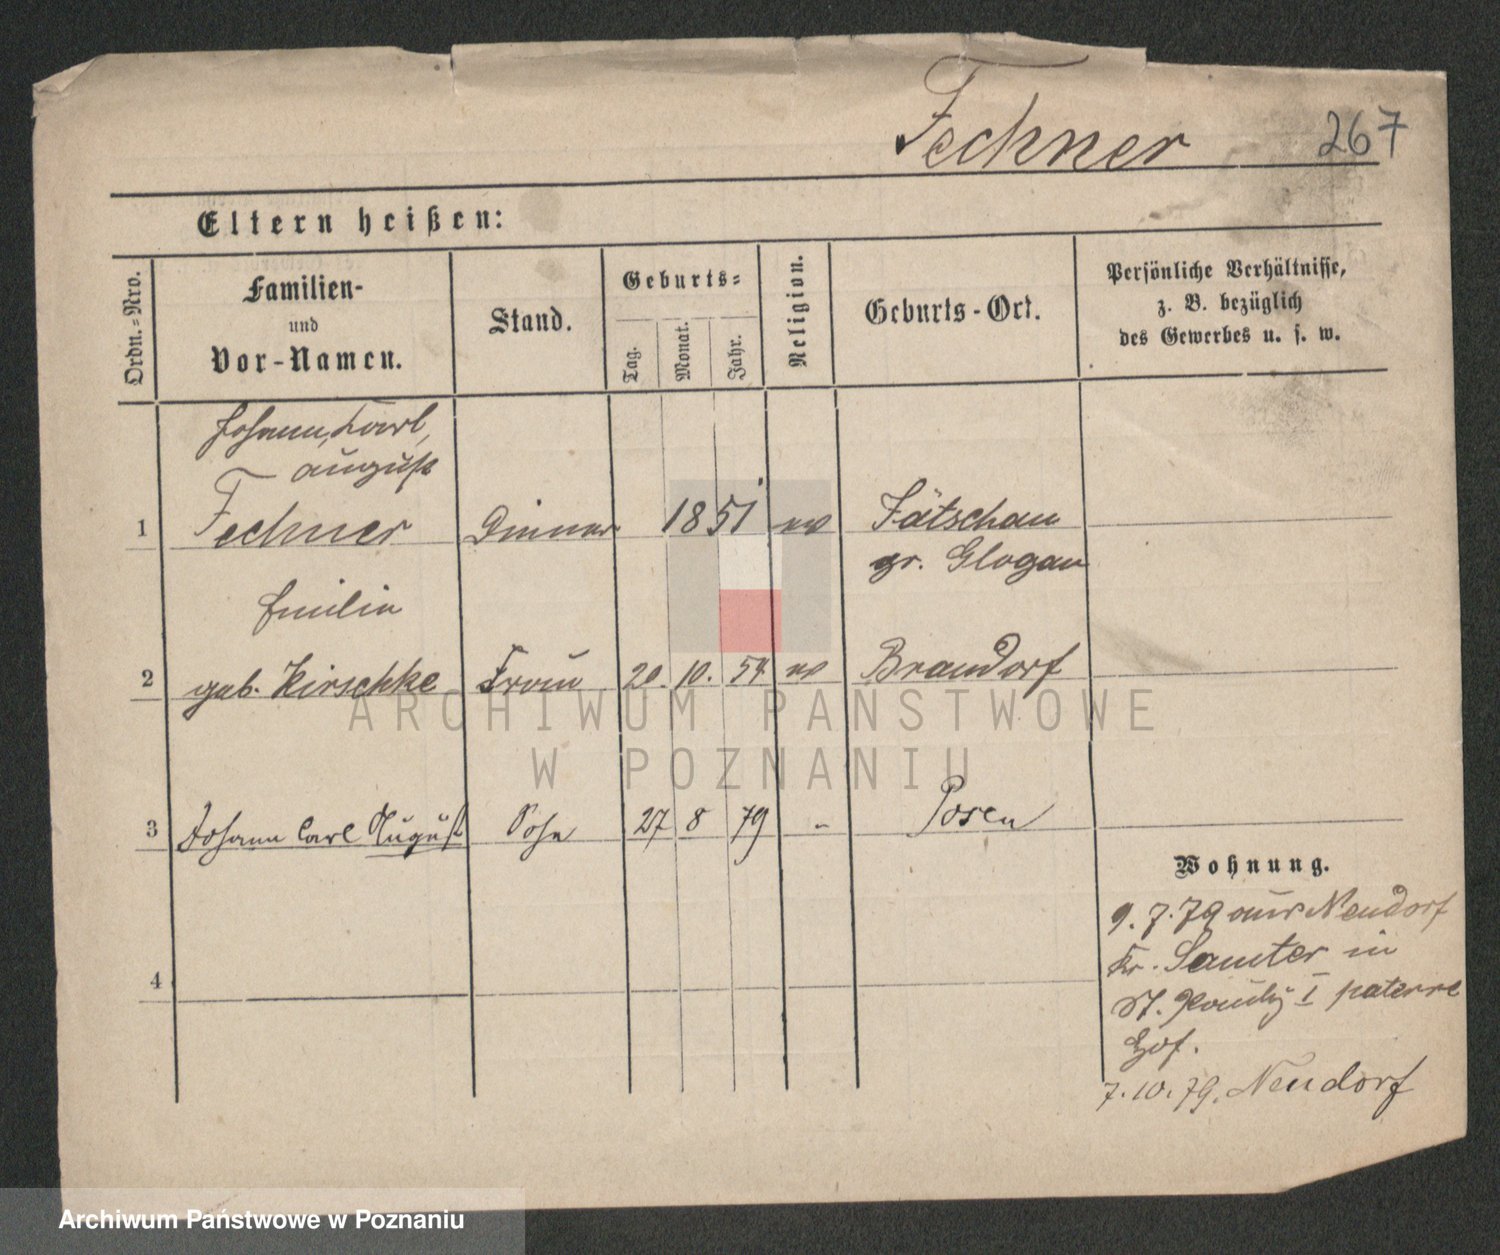 Fechner 267
Eltern heißen:
Ordn.=Nro.
Familien-
und
Vor-Namen.
Stand.
Geburts=
Tag.
Monat.
Jahr.
Religion.
Geburts-Ort.
Persönliche Verhältnisse,
z. B. bezüglich
des Gewerbes u. s. w.
Johann, Karl,
August
1 Fechner Diener 1851 ev Jätschau
gr. Glogau
Emilie
2 geb. Kirschke Frau 20. 10. 54 ev Brandorf
ARCHIWUM PAŃSTWOWE
W POZNANIU
3 Johann Carl August Sohn 27 8 79 - Posen
Wohnung.
9. 7. 79 aus Neudorf
Kr. Samter in
St. I paterre
Hof.
4
7. 10. 79. Neudorf
Archiwum Państwowe w Poznaniu